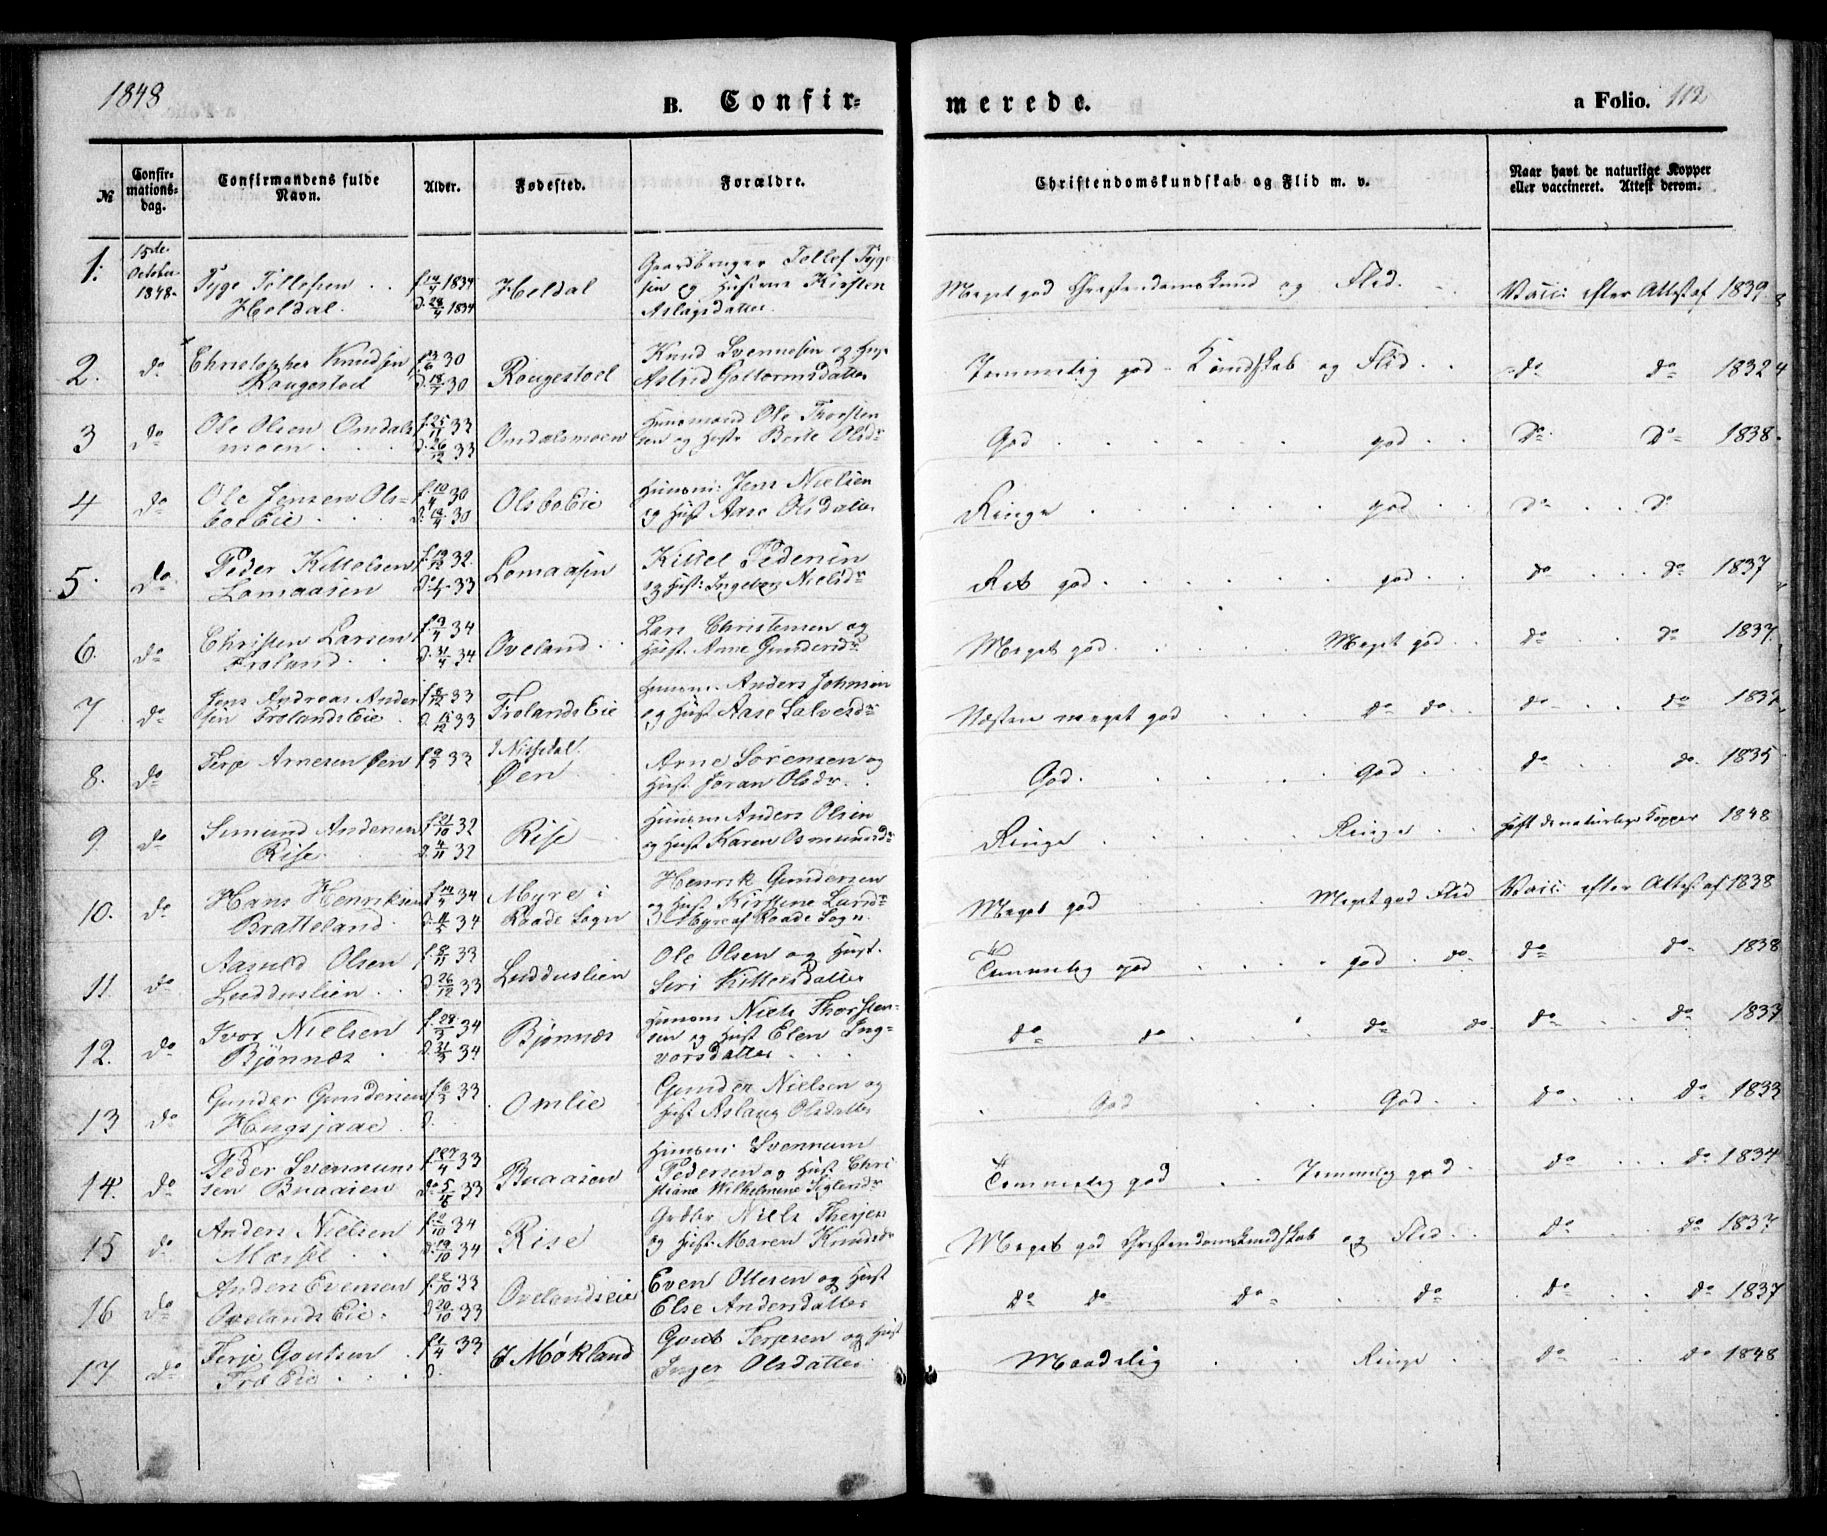 1848
B. Confir-
merede.
a Folio. 112
№
Confir-
mations-
dag.
Confirmandens fulde
Navn.
Alder.
Fødested.
Forældre.
Christendomskundskab og Flid m. v.
Naar havt de naturlige Kopper
eller vaccineret. Attest derom.
1. 15de October 1848. Tyge Tollefsen Heldal. 1834 1834 Heldal Gaardbruger Tollef Tygesen og Hustrue Kirsten Aslagsdatter Meget god Christendomskund og Flid. Vacc: efter Attest af 1839
2. do Christopher Knudsen Rougestad 30 30 Rougestoel Knud Svennosen og Hus Astrid Guttormsdatter Temmelig god Kundskab og Flid do do 1832
3 do Ole Olsen Omdalsmoen f. 25/11 33 d. 26/12 33 Omdalsmoen Huusmand Ole Thorstensen og Hustr Berte Olsdr God god do do 1838
4 do Ole Jensen Olsboe Eie f. 10/4 30 d. 13/4 30 Olsbo Eie Huusm: Jens Nielsen og Hust Aase Olsdatter Ringe god do do
5. do Peder Kittelsen Lomaasen 32 33 Lomaasen Kittel Pedersen og Hust: Ingeborg Nielsdr Ret god god do do 1837
6. do Christen Larsen Froland 34 34 Oveland Lars Christensen og Hust. Anne Gundersdr Meget god Meget god do do 1837
7 do Jens Andreas Andersen Frolands Eie 33 33 Frolands Eie Huusm. Anders Johnsen og Hust Aase Salvesdr Næsten meget god do do do do 1837
8. do Terje Arnesen Øen 33 I Nissedal Øen Arne Sørensen og Hust. Joran Olsdr God. God do do 1835
9. do Simund Andersen Rise f. 21/10 32 d. 4/11 32 Rise Huusm Anders Olsen og Hust Karen Osmundsdr Ringe Ringe Haft de naturlige Kopper 1848
10. do Hans Henriksen Bratteland 34 34 Myre i Raade Sogn Henrik Gundersen og Hust. Kirstene Larsdr Myre af Raade Sogn. Meget god Meget god Flid Vacc: efter Attest af 1838
11 do Aasuld Olsen Ludduslien 33 d. 26/12 33 Ludduslien Ole Olsen og Hust. Siri Kittelsdatter Temmelig god god do do do 1838
12. do Ivor Nielsen Bjønnæs 34 34 Bjønnæs Huusm Niels Thorstensen og Hust Elen Ingvorsdatter do do do do do do 1837
13 do Gunder Gundersen Hugsjaae 33 d. Omlie Gunder Nielsen og Hust Aslaug Olsdatter God God do do 1833
14. do Peder Svennumsen Buaasen f. 27/4 33 d. 5/5 33 Buaasen Huusm: Svennum Pedersen og Hust Christiane Wilhelmine Temmelig god Temmelig god do do 1834
15 do Anders Nielsen Mæssel 34 d. 19/10 34 Rise Grdbr Niels Therjes og Hust. Maren Knudsdr Meget god Christendomskundskab og Flid do do 1837
16 do Anders Evensen Ovelands Eie. 33 d. 20/10 33 Ovelandseie Even Ottesen og Hust Else Andersdatter do do do do do do 1837
17 do Terje Goutsen Fræ Eie f. 1/4 33 d. I Møkland Gout Terjesen og Hust Inger Olsdatter Maadelig Ringe do do 1848